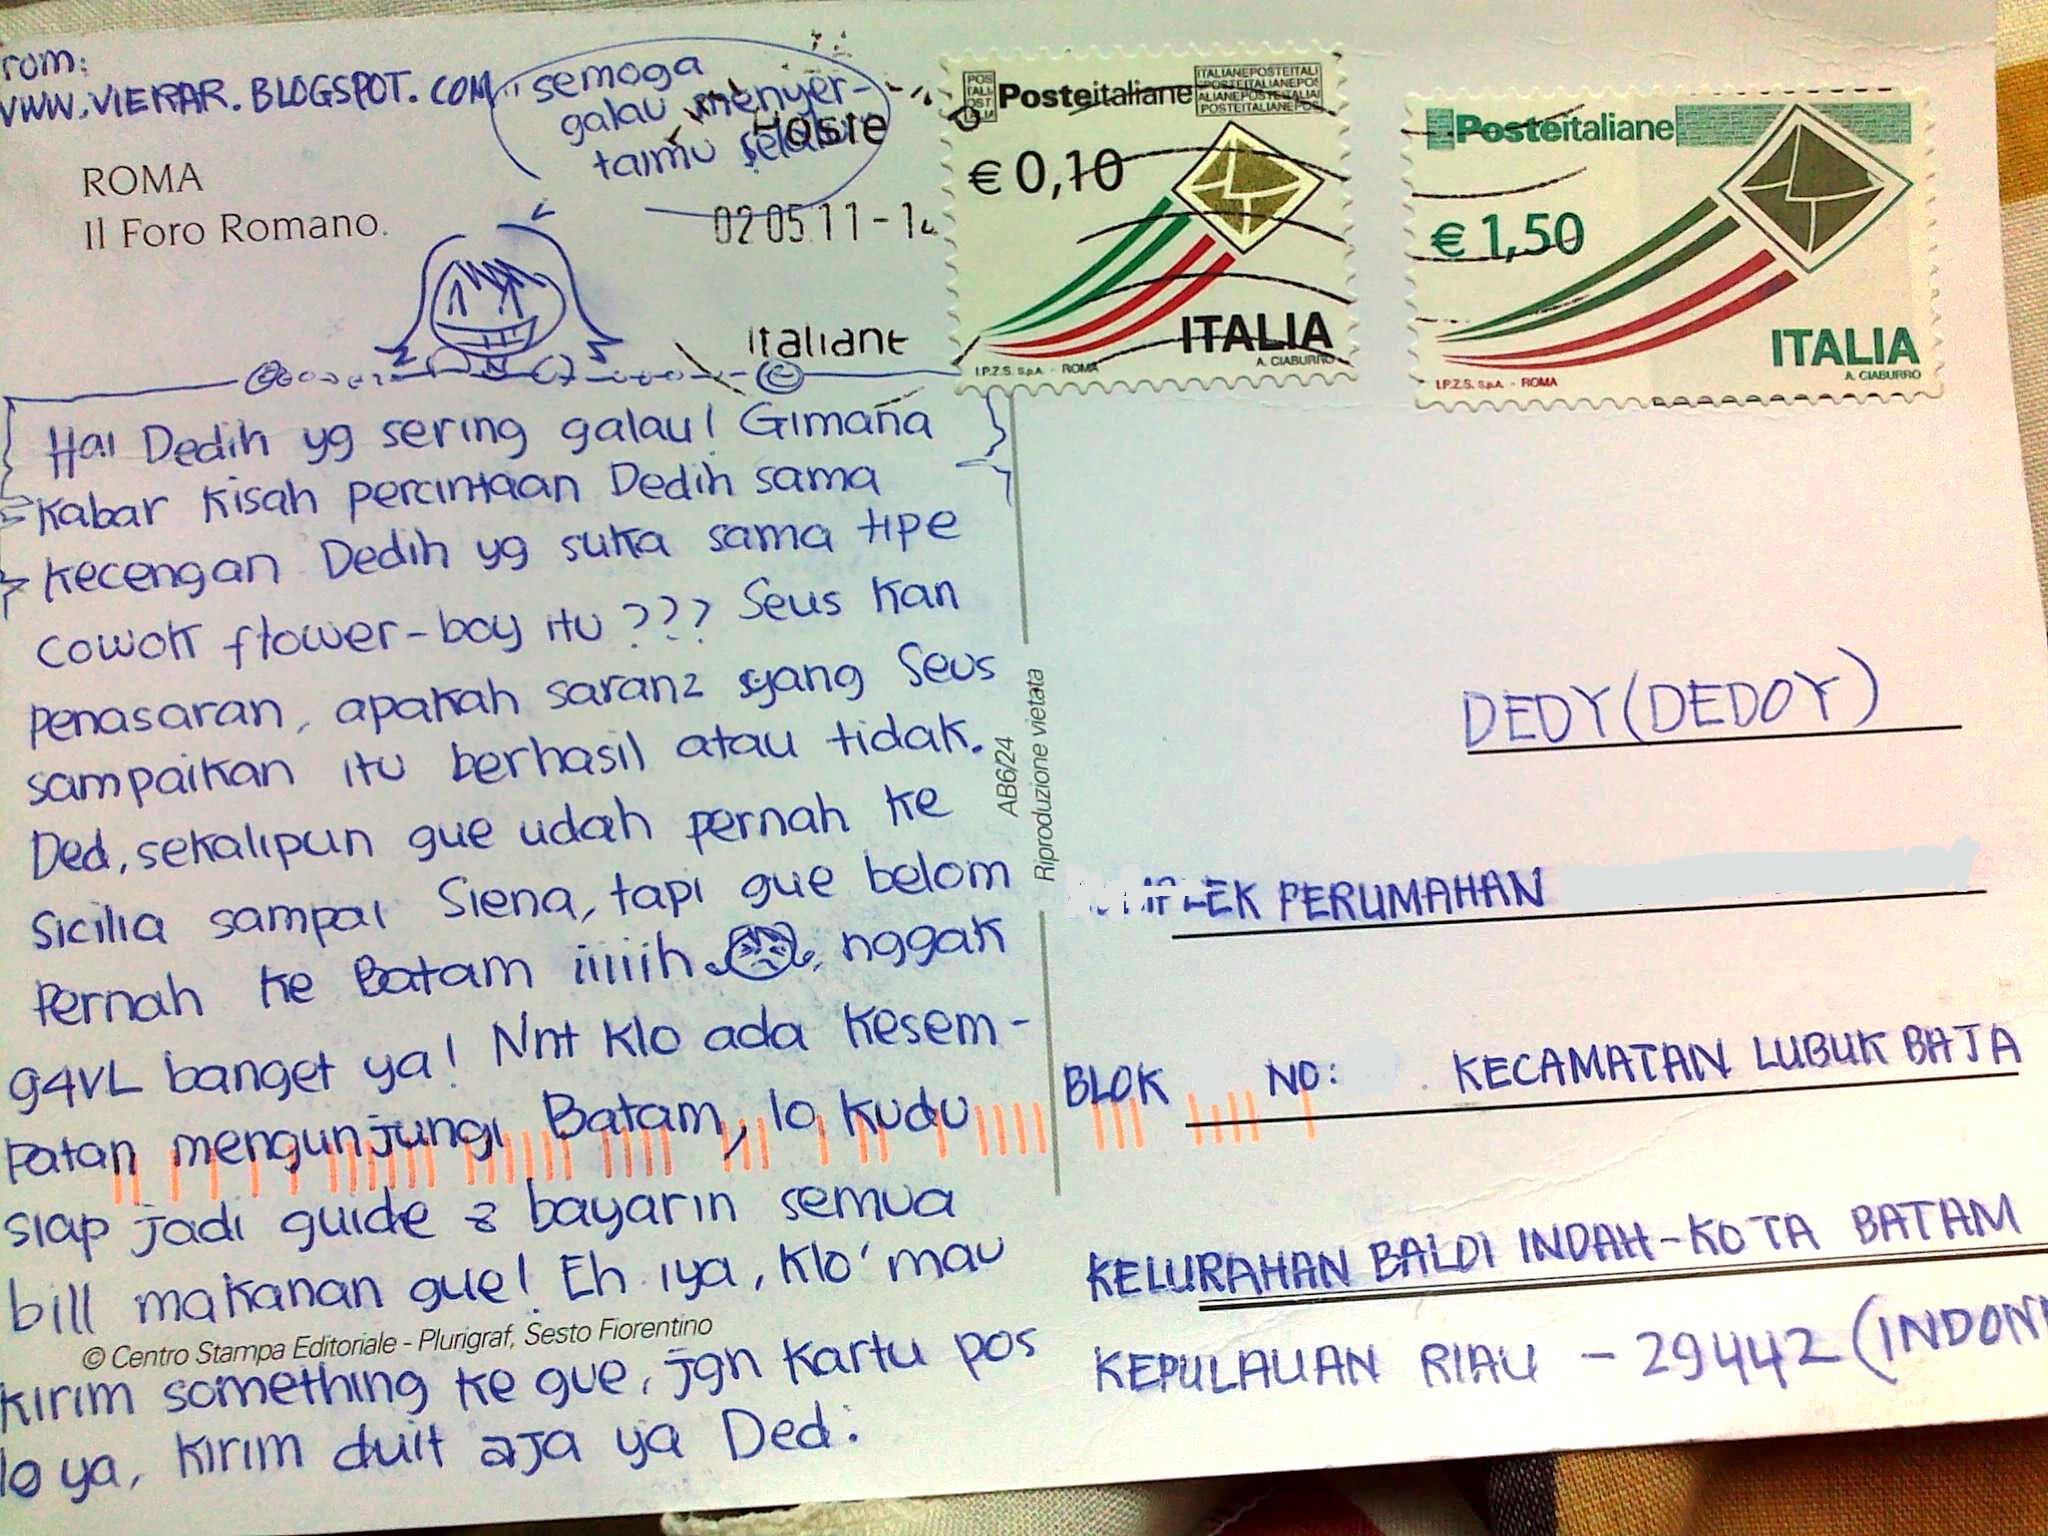 rom:
WWW.VIERAR.BLOGSPOT.COM
"semoga
galau menyer-
taimu selalu
ROMA
Il Foro Romano.
Poste
02 05 11 - 1
italiane
POS
Posteitaliane
ITALIANEPOSTEITALI
€ 0,10
ITALIA
I.P.Z.S. S.p.A. - ROMA
A. CIABURRO
Posteitaliane
€ 1,50
ITALIA
I.P.Z.S. S.p.A. - ROMA
A. CIABURRO
Hai Dedih yg sering galau! Gimana
kabar kisah percintaan Dedih sama
kecengan Dedih yg suka sama tipe
cowok flower-boy itu??? Seus kan
penasaran, apakah saran2 yang Seus
sampaikan itu berhasil atau tidak.
Ded, sekalipun gue udah pernah ke
Sicilia sampai Siena, tapi gue belom
Pernah ke Batam iiiiih, nggak
g4VL banget ya! Nnt klo ada kesem-
patan mengunjungi Batam, lo kudu
siap jadi guide & bayarin semua
bill makanan gue! Eh iya, klo' mau
© Centro Stampa Editoriale - Plurigraf, Sesto Fiorentino
kirim something ke gue, jgn kartu pos
lo ya, kirim duit aja ya Ded.
AB6/24
Riproduzione vietata
DEDY (DEDOY)
PERUMAHAN
BLOK NO: . KECAMATAN LUBUK BAJA
KELURAHAN BALOI INDAH-KOTA BATAM
KEPULAUAN RIAU - 29442 (INDON